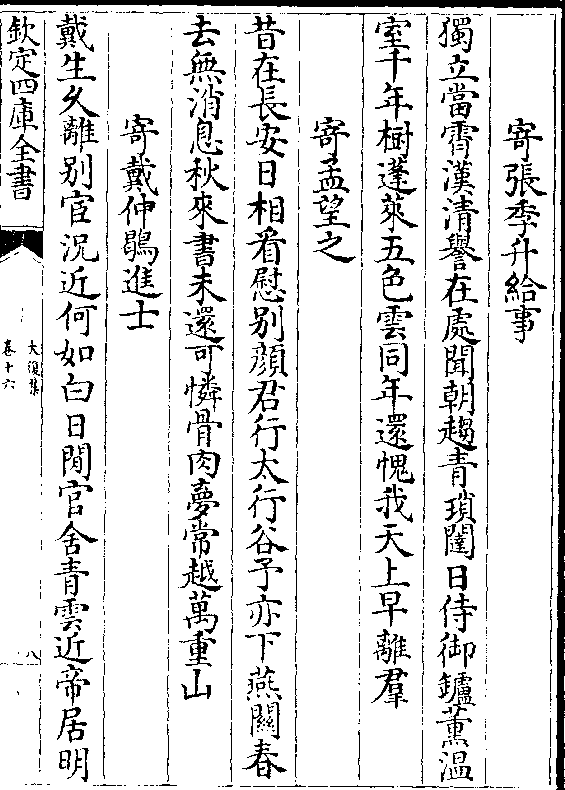 寄張季升給事
獨立當霄漢清譽在處聞朝趨青瑣闥日侍御鑪薫温
室千年樹蓬萊五色雲同年還愧我天上早離羣
寄孟望之
昔在長安日相看慰别顔君行太行谷予亦下燕關春
去無消息秋來書未還可憐骨肉夢常越萬重山
寄戴仲鶡進士
戴生久離别宦況近何如白日閒官舍青雲近帝居明
欽定四庫全書
大復集
卷十六
八